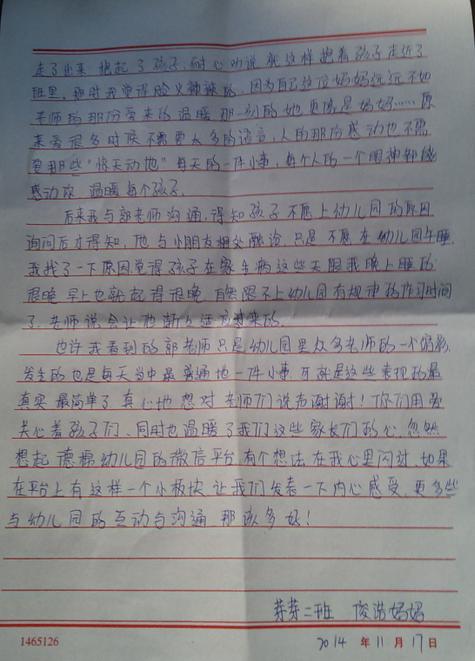 走了出来 抱起了孩子,耐心劝说 就这样抱着孩子走近了
班里,那时我觉得脸火辣辣的,因为自己这位妈妈远远不如
老师的那份爱来的温暖 那一刻的她更像是妈妈……原
来爱很多时候不需要太多的语言,人的那份感动也不需
要那些“惊天动地”每天的一件小事,每个人的一个眼神都能
感动你 温暖每个孩子.
后来我与郭老师沟通,得知孩子不愿上幼儿园的原因
询问后才得知,他与小朋友相处融洽,只是不愿在幼儿园午睡
我找了一下原因觉得孩子在家生病这些天跟我晚上睡的
很晚 早上也就起得很晚 自然跟不上幼儿园有规律的作习时间
了.老师说会让他渐渐适应过来的.
也许我看到的郭老师只是幼儿园里众多老师的一个缩影
发生的也是每天当中最普通地一件小事 可就是这些表现的最
真实 最简单了 真心地想对老师们说声谢谢!你们用爱
关心着孩子们、同时也温暖了我们这些家长们的心.忽然
想起 德棉幼儿园的微信平台 有个想法在我心里闪过.如果
在平台上有这样一个小板块 让我们发表一下内心感受 更多些
与幼儿园的互动与沟通 那该多好!
芽芽二班 俊浩妈妈
1465126 2014 年 11 月 17 日